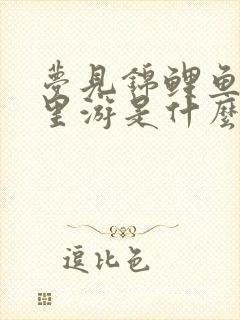 夢見錦鯉魚
里游是什麼
逗比色